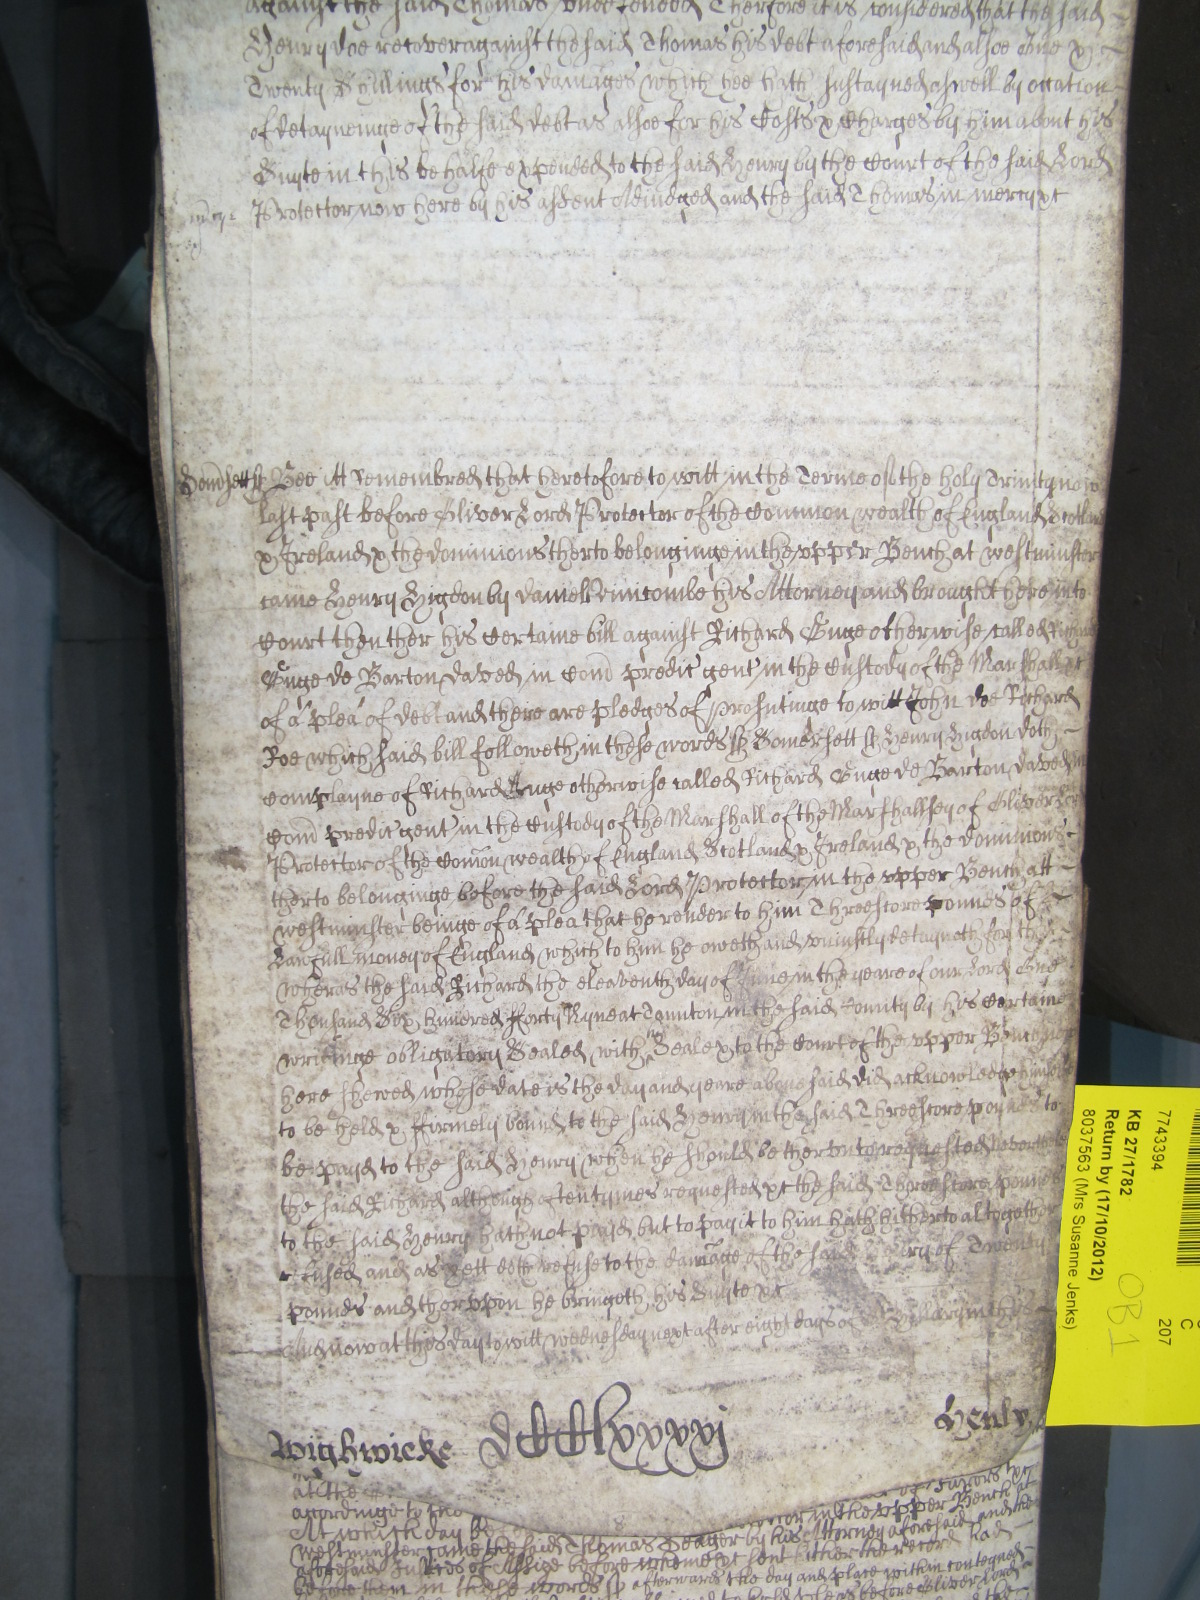 against the said Thomas Therfore it is considered that the said
Henry doe recover against the said Thomas his debt aforesaid and alsoe
Twenty Shillings for his damages which hee hath sustayned aswell by occation
of detayneinge of the said debt as alsoe for his Costs & Charges by him about his
Suyte in this behalfe expended to the said Henry by the Court of the said Lord
Protector now here by his assent Adiudged and the said Thomas in mercy &c
Somsett ss Bee itt Remembred that heretofore to witt in the Terme of the holy Trinity now
last past before Oliver Lord Protector of the Common wealth of England Scotland
& Ireland & the dominions therto belonginge in the upper Bench at westminster
came Henry Higdon by Daniell his Attorney and brought here into
Court then ther his Certaine bill against Richard Guge otherwise called Richard
Guge de Barton David in Com predict gent in the Custody of the Marshall &c
of a plea of debt and there are pledges of prosecutinge to witt John doe Richard
Roe which said bill followeth in these words ss Somersett ss Henry Higdon doth
Complayne of Richard Guge otherwise called Richard Guge de Barton David in
Com predict gent in the Custody of the Marshall of the Marshallsey of Oliver Lord
Protector of the Comon wealth of England Scotland & Ireland & the dominions
therto belonginge before the said Lord Protector in the upper Bench att
westminster beinge of a plea that he render to him Threescore pounds of
Lawfull money of England which to him he oweth and uniustly detayneth for that
wheras the said Richard the eleaventh day of June in the yeare of our Lord One
Thousand Six hundred fforty Nyne at Taunton in the said County by his Certaine
writinge obligatory Sealed with his Seale & to the Court of the upper Bench now
here shewed whose date is the day and yeare abovesaid did acknowledge himselfe
to be held & ffirmely bound to the said Henry in the said Threescore pounds to
be payd to the said Henry when he should be therunto requested Neverthelesse
the said Richard although oftentymes requested &c the said Threescore pounds
to the said Henry hath not payd but to pay it to him hath hitherto altogether
refused and as yett doth refuse to the damage of the said Henry of Twenty
pounds and therupon he bringeth his Suyte &c
And now at this day to witt wednesday next after eight dayes of Hillary in this
Wighwicke Dccclxxxxj Henly
at the
accordinge to the of Jurors &c
At which day in the upper Bench at
westminster came the said Thomas Seager by his Attorney aforesaid and the
aforesaid Justices of Assize before whome &c sent hither the record had
before them in these words ss afterwards the day and place within conteyned
before Oliver Lord
7743394
KB 27/1782
Return by (17/10/2012)
8037563 (Mrs Susanne Jenks)
C
207
OB1